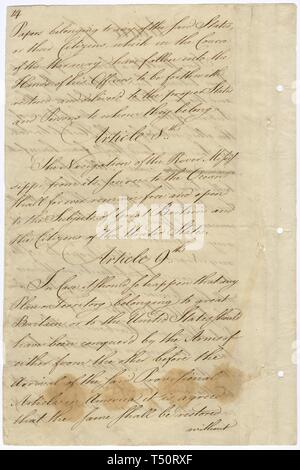 14
Papers belonging to any of the said States,
or their Citizens, which in the Course
of the War may have fallen into the
Hands of his Officers, to be forthwith
restored and deliver'd to the proper States
and Persons to whom they belong.
Article 8th
The Navigation of the River Missis
sippi, from its Source to the Ocean
shall for ever remain free and open
to the Subjects of Great Britain and
the Citizens of the United States.
Article 9th
In Case it should so happen that any
Place or Territory belonging to great
Britain or to the United States should
have been conquer'd by the Arms of
either from the other before the
Arrival of the said Provisional
Articles in America it is agreed
that the same shall be restored
without
alamy
Image ID: T50RXF
www.alamy.com